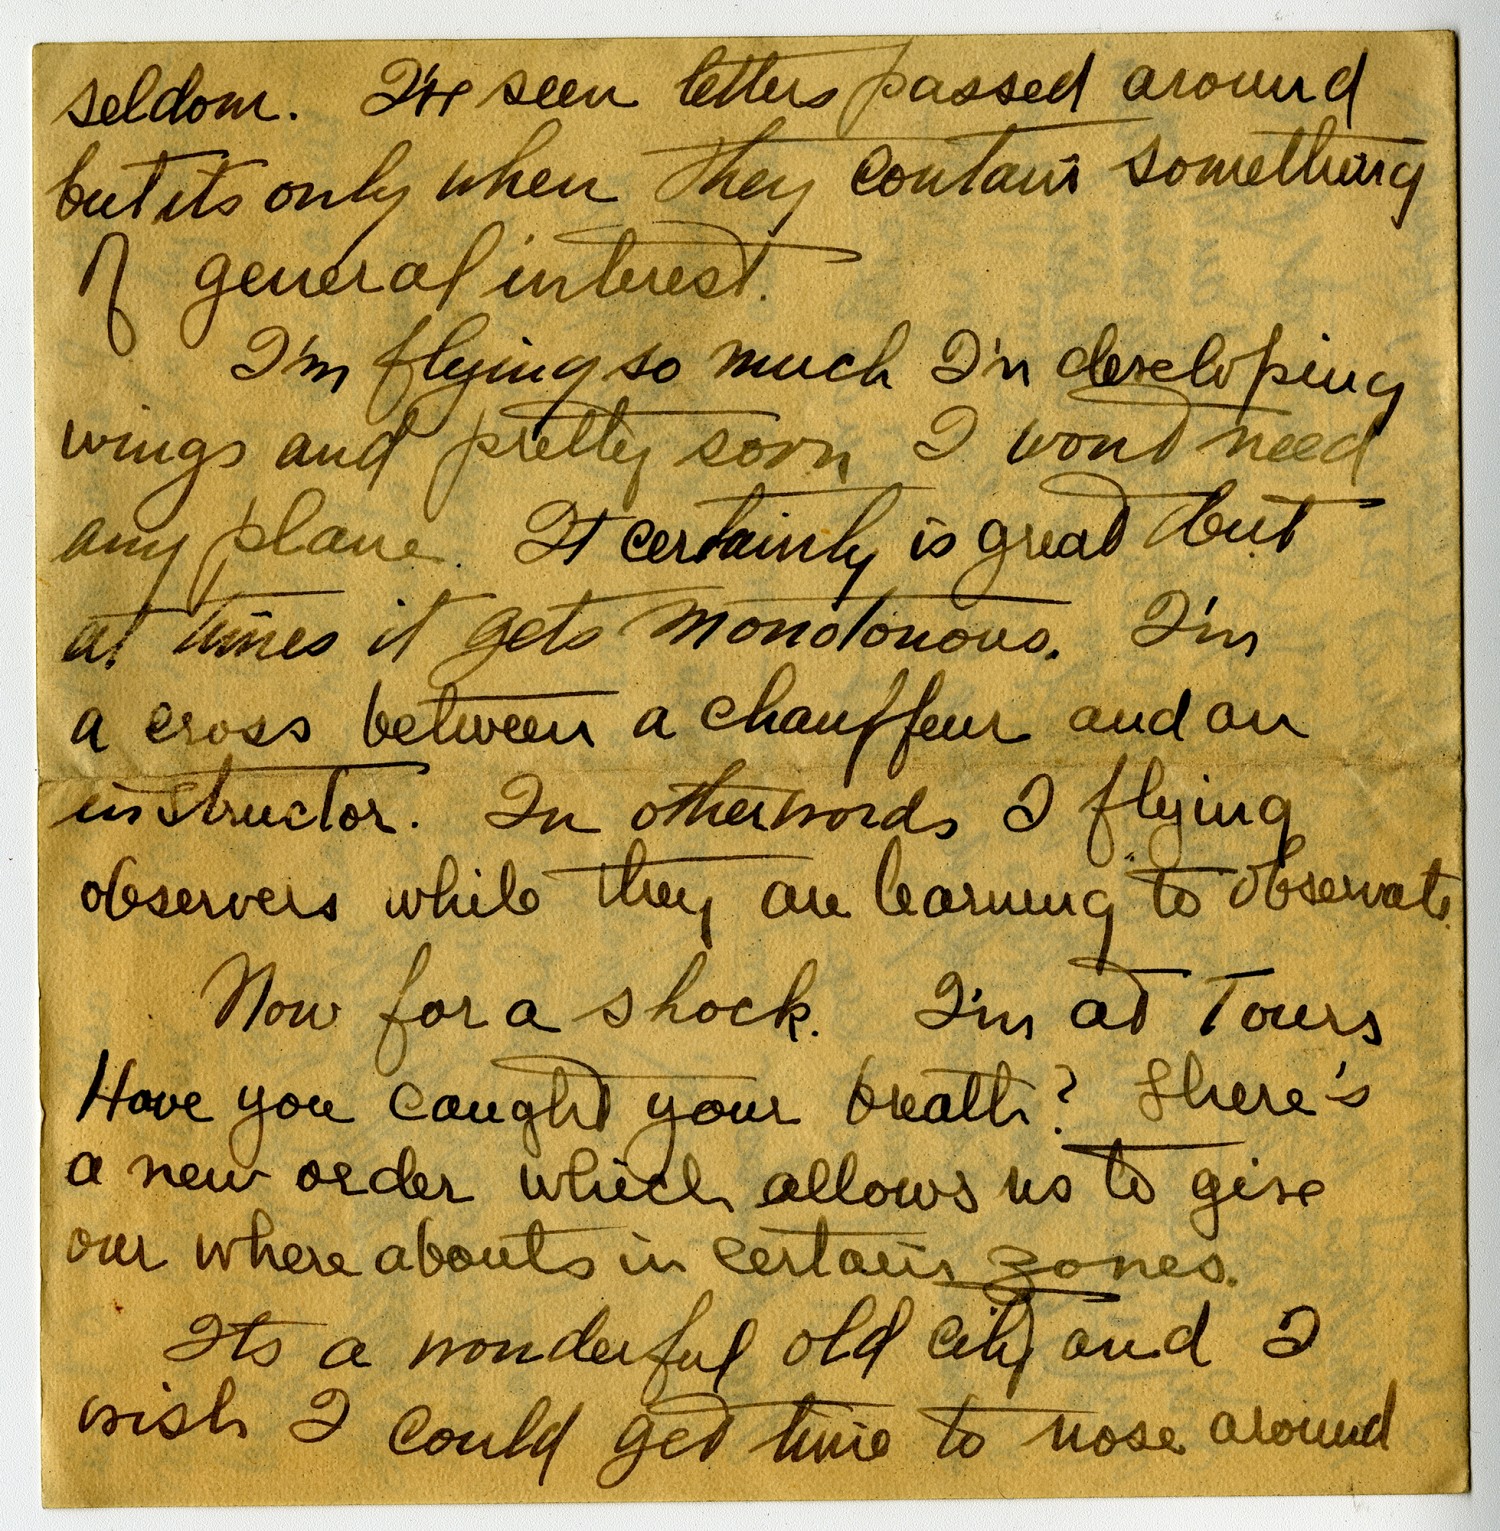 seldom. I've seen letters passed around
but its only when they contain something
of general interest.
I'm flying so much I'm developing
wings and pretty soon I wont need
any plane. It certainly is great but
at times it gets monotonous. I'm
a cross between a chauffeur and an
instructor. In other words I flying
observers while they are learning to observate.
Now for a shock. I'm at Tours
Have you caught your breath? There's
a new order which allows us to give
our where abouts in certain zones.
Its a wonderful old city and I
wish I could get time to nose around